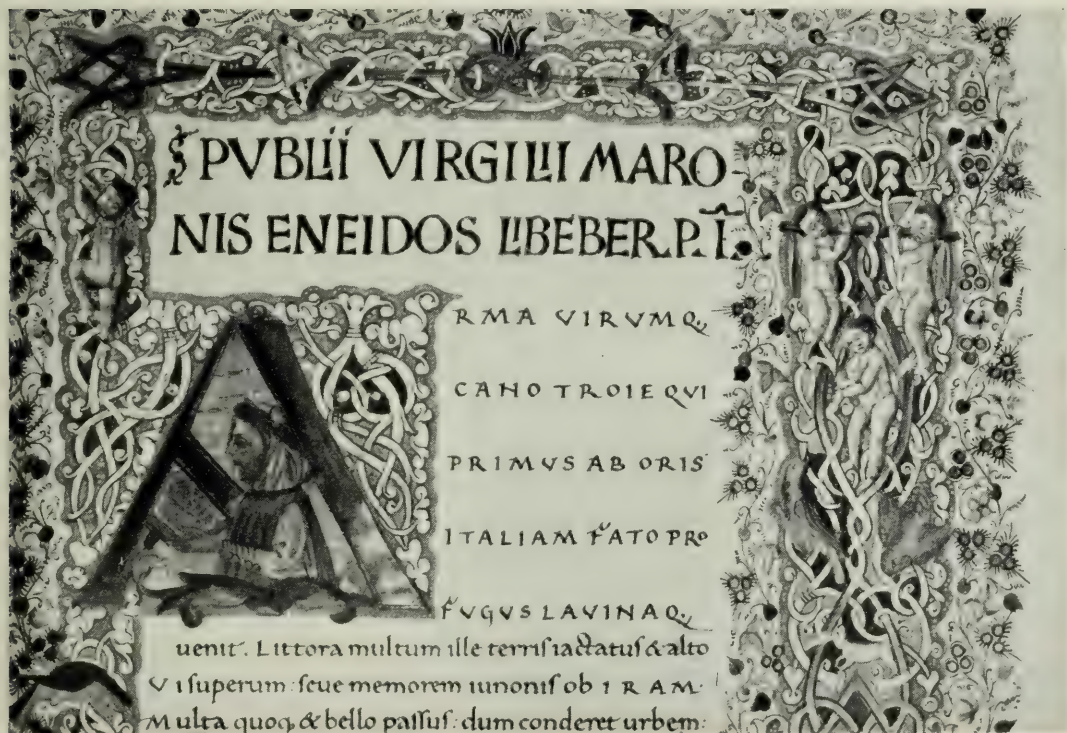 PVBLII VIRGILII MARO-
NIS ENEIDOS LIBEBER. P. I.
ARMA VIRVMQ;
CANO TROIE QVI
PRIMVS AB ORIS
ITALIAM FATO PRO
FUGVS LAVINAQ;
uenit. Littora multum ille terrif iactatuf & alto
VI superum: seue memorem iunonis ob IRAM.
Multa quoq; & bello passus: dum conderet urbem: